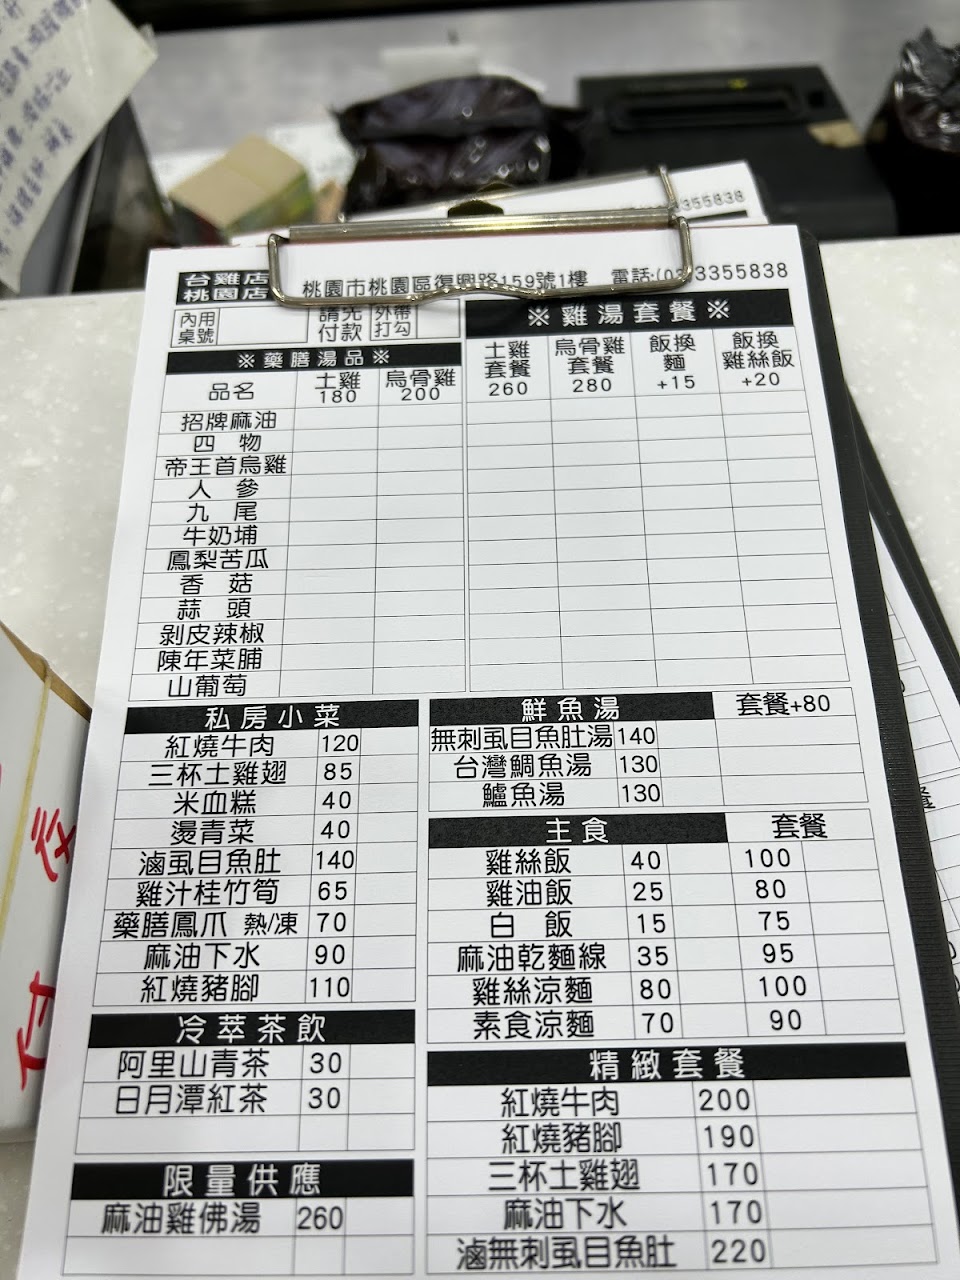 3355838
台雞店
桃園店
桃園市桃園區復興路159號1樓 電話:(03)3355838
內用
桌號
請先
付款
外帶
打勾
※藥膳湯品※
品名 土雞 180 烏骨雞 200
招牌麻油
四 物
帝王首烏雞
人 參
九 尾
牛奶埔
鳳梨苦瓜
香 菇
蒜 頭
剝皮辣椒
陳年菜脯
山葡萄
※雞湯套餐※
土雞套餐 260 烏骨雞套餐 280 飯換麵 +15 飯換雞絲飯 +20
私房小菜
紅燒牛肉 120
三杯土雞翅 85
米血糕 40
燙青菜 40
滷虱目魚肚 140
雞汁桂竹筍 65
藥膳鳳爪 熱/凍 70
麻油下水 90
紅燒豬腳 110
冷萃茶飲
阿里山青茶 30
日月潭紅茶 30
限量供應
麻油雞佛湯 260
鮮魚湯 套餐+80
無刺虱目魚肚湯 140
台灣鯛魚湯 130
鱸魚湯 130
主食 套餐
雞絲飯 40 100
雞油飯 25 80
白 飯 15 75
麻油乾麵線 35 95
雞絲涼麵 80 100
素食涼麵 70 90
精緻套餐
紅燒牛肉 200
紅燒豬腳 190
三杯土雞翅 170
麻油下水 170
滷無刺虱目魚肚 220